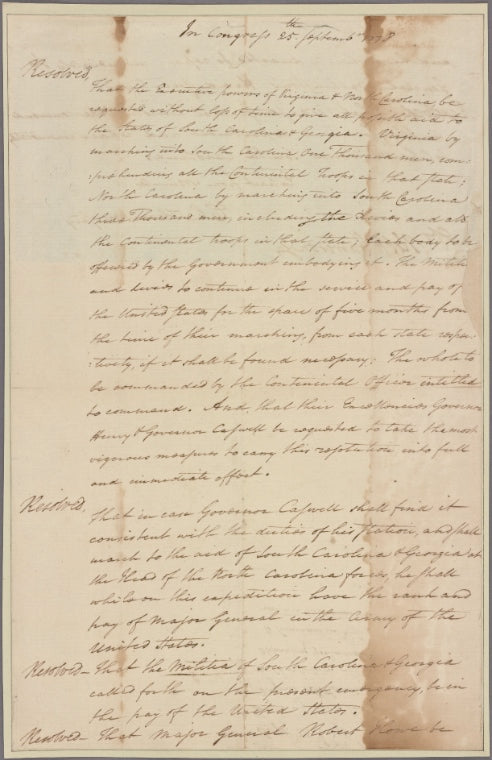 In Congress 25th September 1778
Resolved,
That the Executive powers of Virginia & North Carolina be
requested without loss of time to give all possible aid to
the States of South Carolina & Georgia. Virginia by
marching into South Carolina One Thousand men, com-
:prehending all the Continental Troops in that state;
North Carolina by marching into South Carolina
three Thousand men, including the levies and all
the Continental troops in that state; Each body to be
officered by the Government embodying it. The Militia
and levies to continue in the service and pay of
the United States for the space of five months from
the time of their marching, from each state respec-
:tively, if it shall be found necessary: The whole to
be commanded by the Continental Officer intitled
to command. And, that their Excellencies Governor
Henry & Governor Caswell be requested to take the most
vigorous measures to carry this resolution into full
and immediate effect.
Resolved,
That in case Governor Caswell shall find it
consistent with the duties of his station, and shall
march to the aid of South Carolina & Georgia at
the Head of the North Carolina forces, he shall
while on this expedition have the rank and
pay of Major General in the Army of the
United States.
Resolved - That the Militia of South Carolina & Georgia
called forth on the present emergency, be in
the pay of the United States.
Resolved - That Major General Robert Howe be